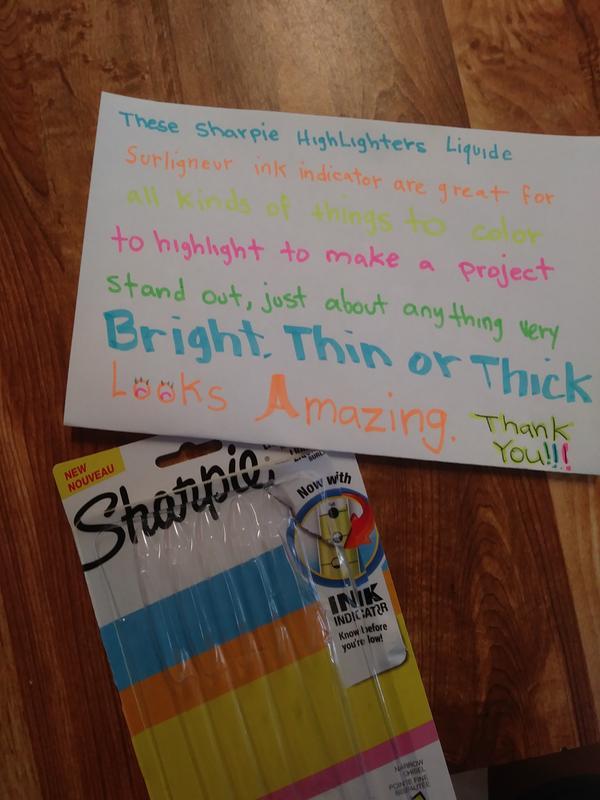 These Sharpie HighLighters Liquide
Surligneur ink indicator are great for
all kinds of things to color
to highlight to make a project
stand out, just about anything very
Bright. Thin or Thick
Looks Amazing.
Thank
You!!!
NEW
NOUVEAU
Sharpie
Now with
INK
INDICATOR
Know before
you're low!
NARROW
CHISEL
POINTE FINE
BISEAUTÉE